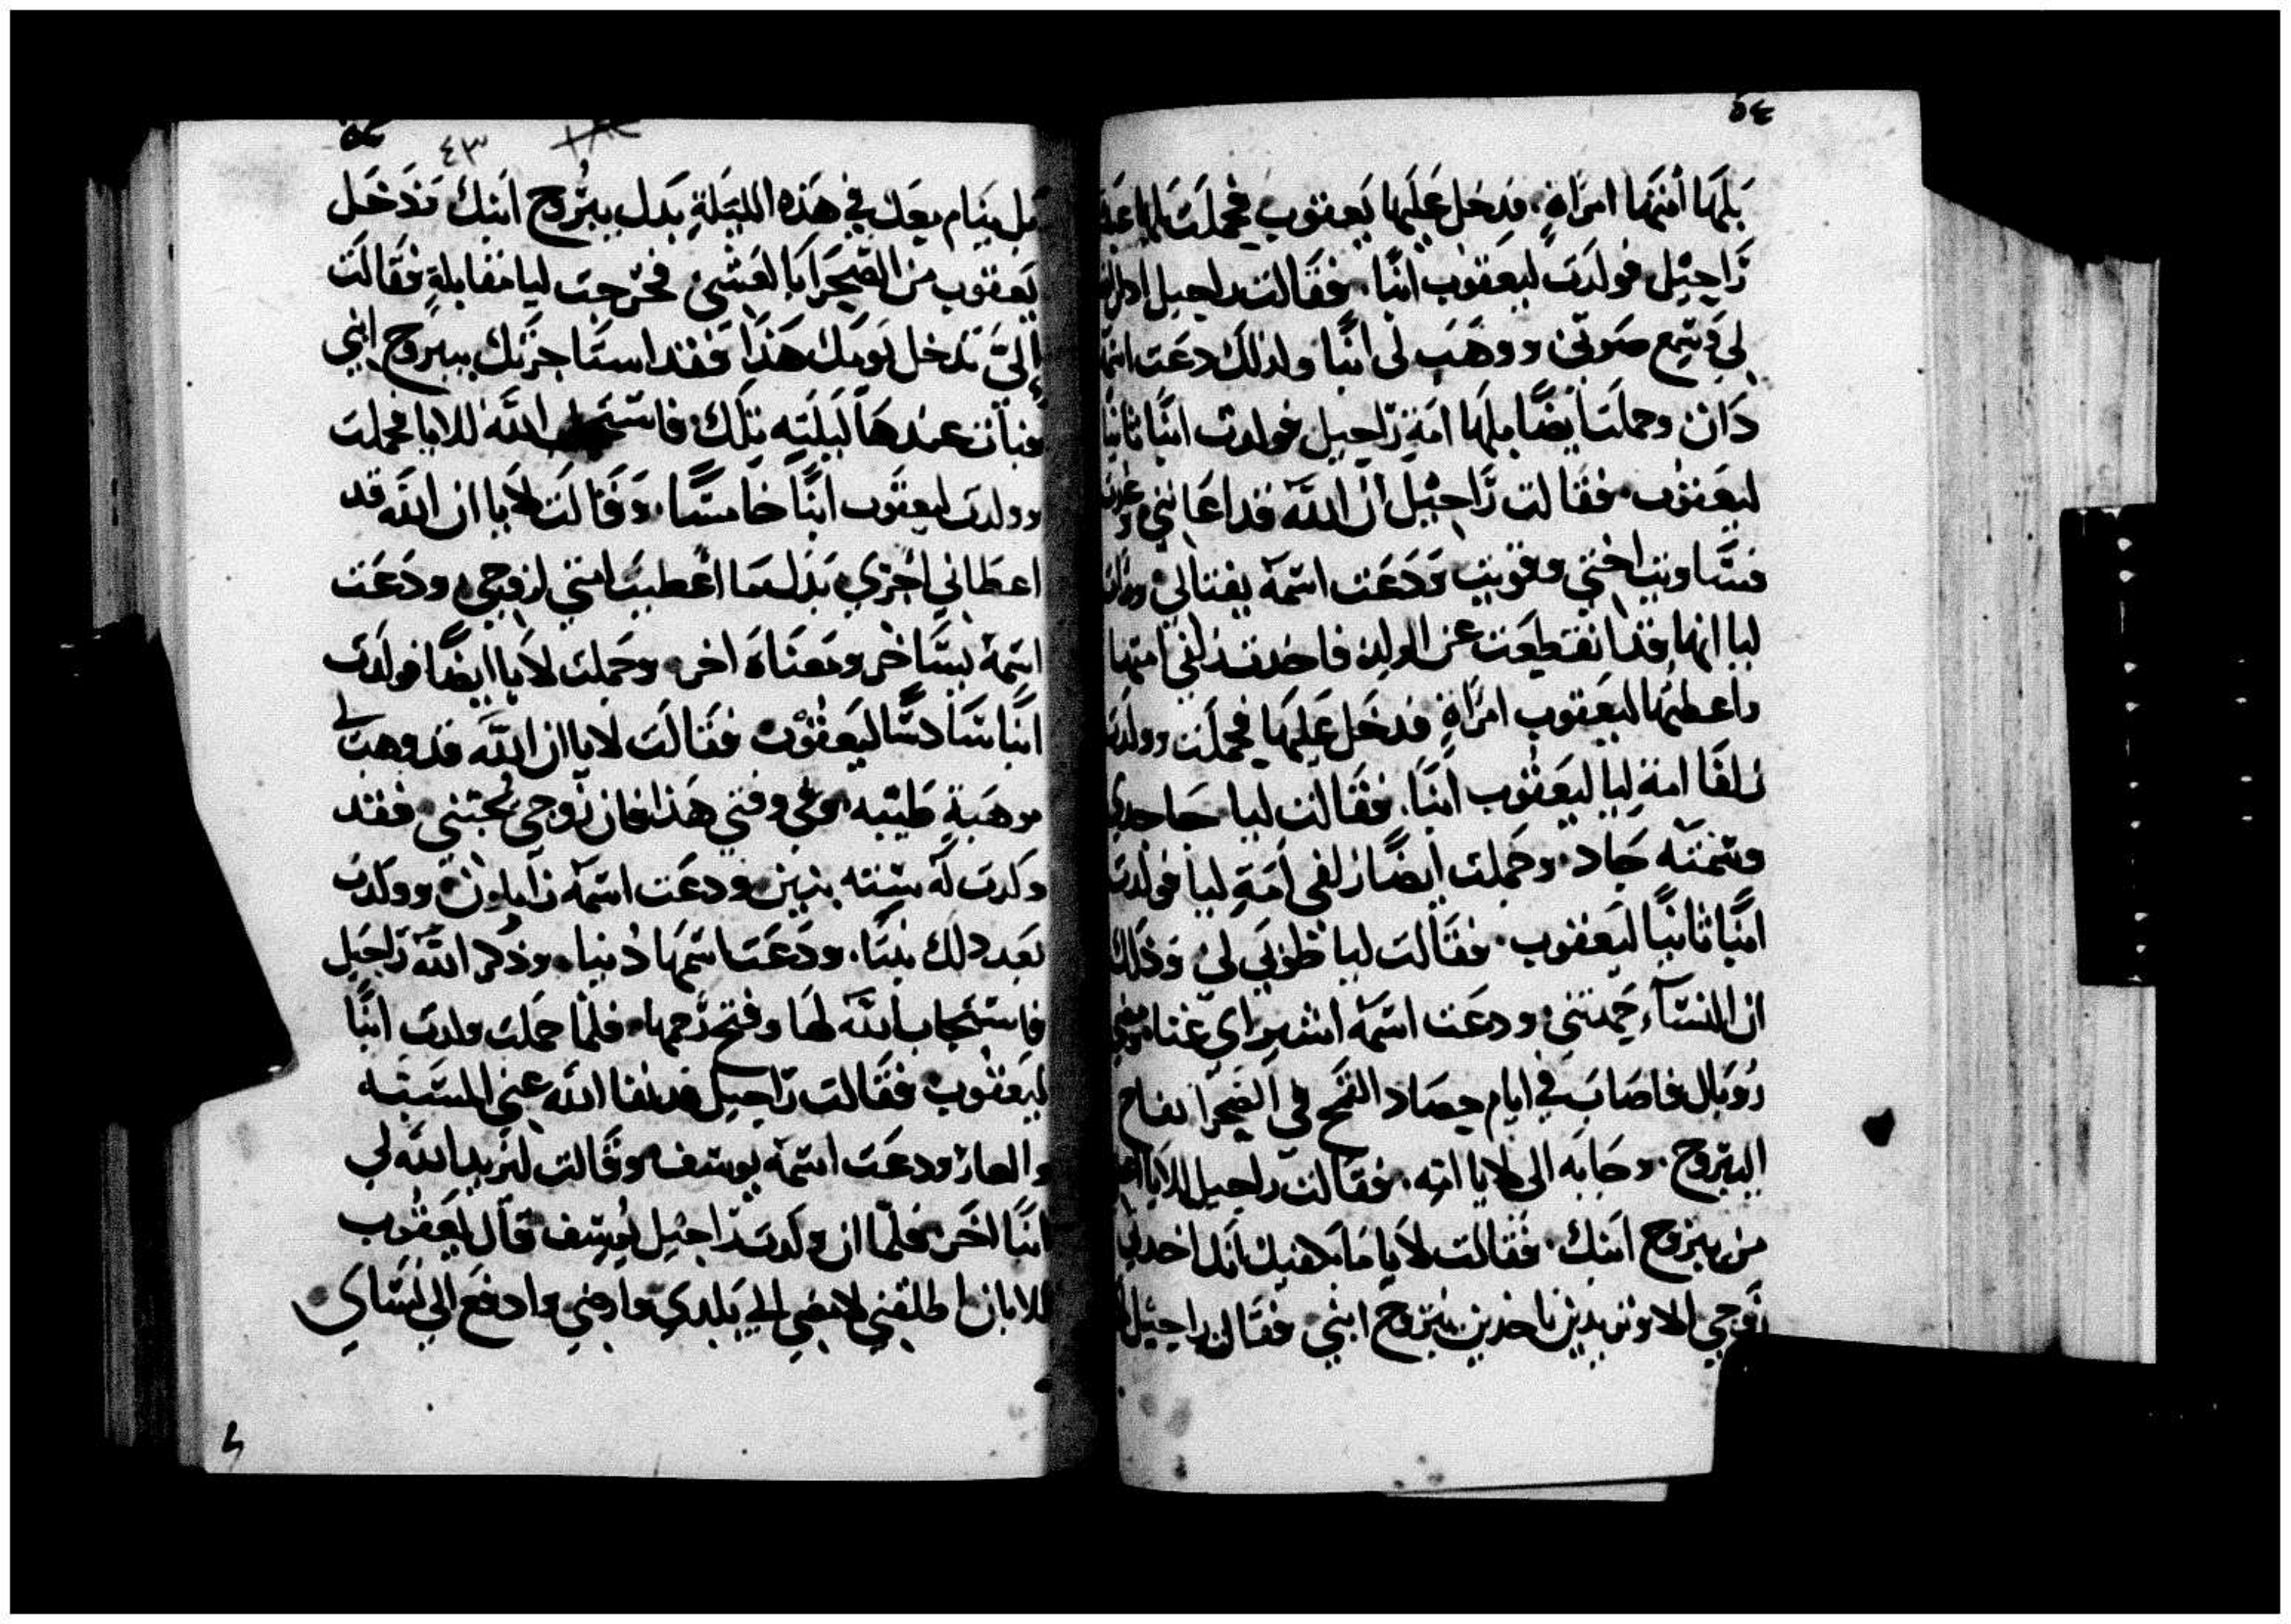 ٥٤
بلها أمتها امراة، فدخل عليها يعقوب فحملت بلها
راحيل فولدت ليعقوب ابنًا، فقالت راحيل
لي وسمع صوتي ووهب لي ابنًا ولذلك دعت
دان وحملت ايضًا بلها امة راحيل فولدت ابنًا ثانيًا
ليعقوب فقالت راحيل ان الله قد اعانني
فساويت اختي وقويت ودعت اسمه يفتالي
ليا انها قد انقطعت عن الولاد فاخذت زلفي امتها
واعطتها ليعقوب امراةٍ فدخل عليها فحملت وولدت
زلفا امة ليا ليعقوب ابنًا، فقالت ليا
وسمته جاد. وحملت ايضًا زلفى أمة ليا فولدت
ابنًا ثانيًا ليعقوب. فقالت ليا طوبى لي وذلك
ان النساء حمدتني ودعت اسمه اشير اي غنا
روبال فاصاب في ايام حصاد القمح في الصحرا تفاح
اليبروح. وجابه الى لايا امه، فقالت راحيل للايا
من يبروح ابنك. فقالت لايا ما
زوجي الا وتريدين تاخذين يبروح ابني فقالت راحيل
٤٣
بل ينام معك في هذه الليلة بدل يبروح ابنك فدخل
يعقوب من الصحرا بالعشي فخرجت ليا مقابلة فقالت
الىّ تدخل يومك هذا فقد استاجرتك بيبروح ابني
فبات عندها ليلته تلك. الله للايا فحملت
وولدت ليعقوب ابنًا خامسًا، وقالت لايا ان الله قد
اعطاني اجري بدل ما اعطيت امتي لزوجي ودعت
اسمه يساخر ومعناه اخر. وحملت لايا ايضًا فولدت
ابنًا سادسًا ليعقوب فقالت لايا ان الله قد وهب لي
موهبة طيبه وفي وقتي هذا فان زوجي يحبني فقد
ولدت له ستة بنين ودعت اسمه زابلون وولدت
بعد ذلك بنتًا، ودعت اسمها دينا، وذكر الله راحيل
فاستجاب الله لها وفتح رحمها. فلما حملت ولدت ابنًا
ليعقوب فقالت راحيل قد نفا الله عني المسبه
والعار ودعت اسمه يوسف وقالت ليزيد الله لي
ابنًا اخر فلما ان ولدت راحيل يوسف قال يعقوب
للابان اطلقني لامضي الى بلدي وارضي وادفع الي نساي